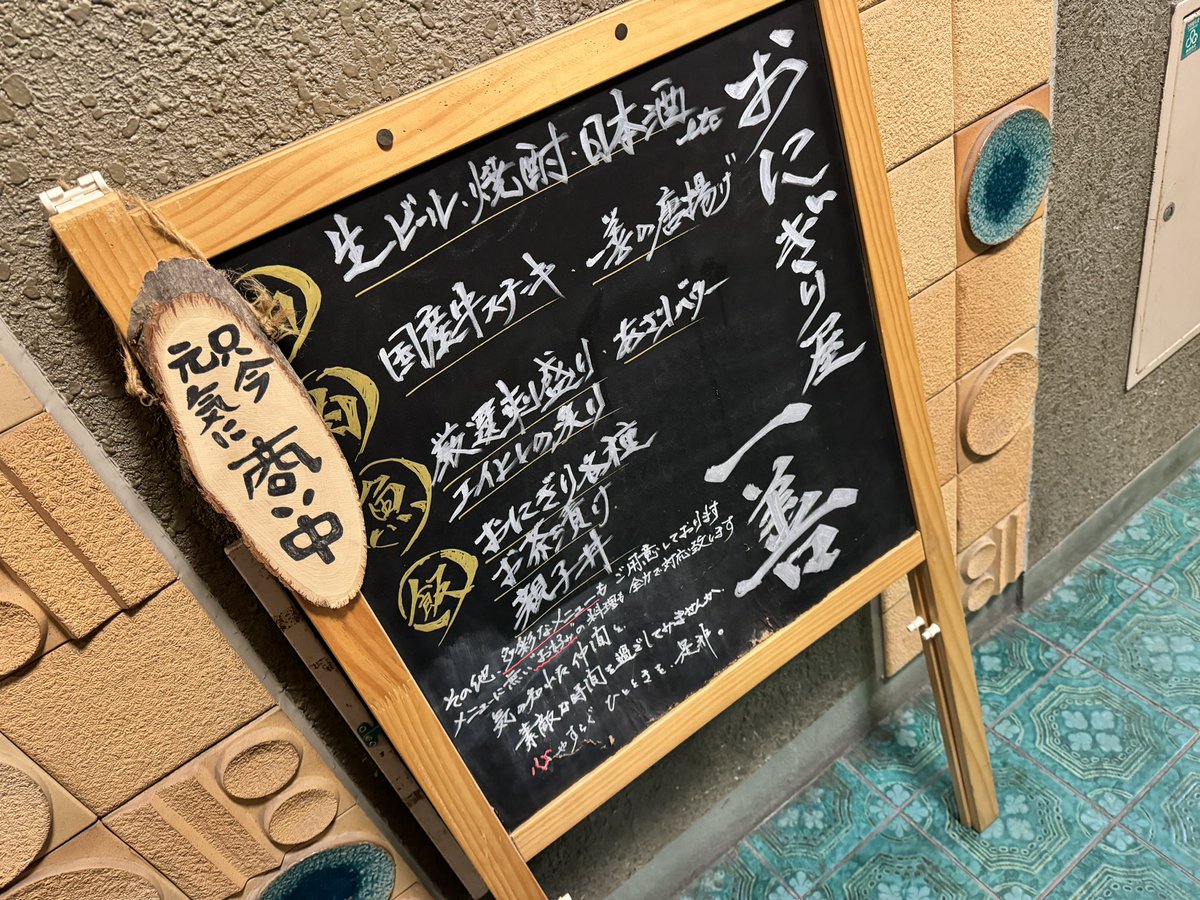 おにぎり屋
一善
生ビール・焼酎・日本酒 etc
国産牛ステーキ・善の唐揚げ
厳選刺し盛り・あさりバター
エイヒレの炙り
おにぎり各種
お茶漬け
親子丼
魚
飯
その他、多彩なメニューもご用意しております
メニューに無い"お好み"の料理も全力で対応致します
気の知れた仲間と、
素敵な時間を過ごしてみませんか、
心やすらぐひとときを、是非。
只今
元気に
商い中